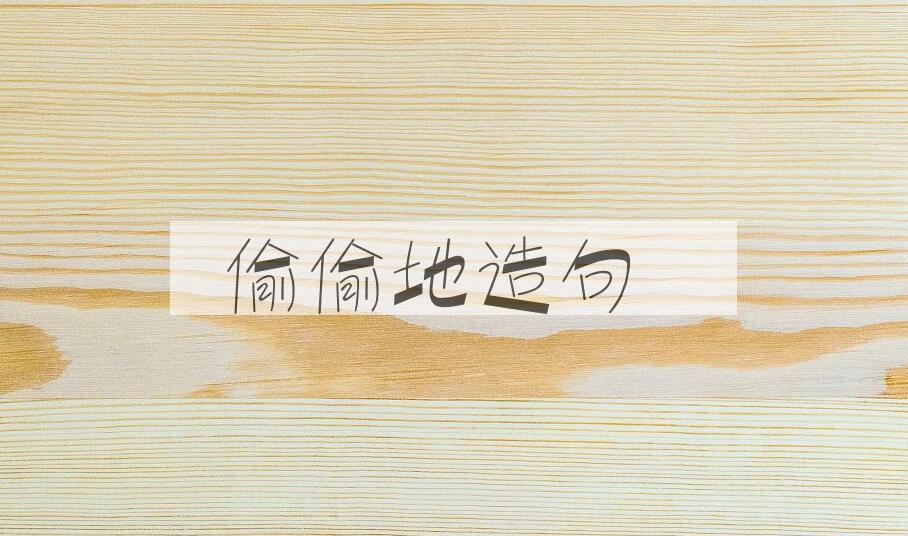 偷偷地造句